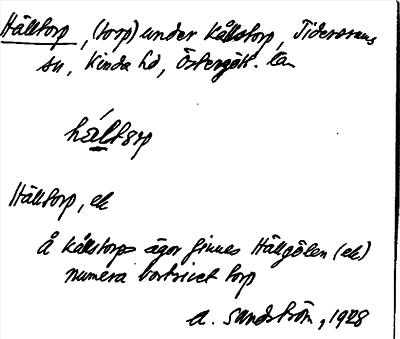 Hälltorp, (torp) under Kållstorp, Tidersrums
sn, Kinda hd, Östergötl. län
hál̠torp
Hälltorp, ek
Å Kållstorps ägor finnes Hällgölen (ek)
numera bortrivet torp
A. Sandström, 1928